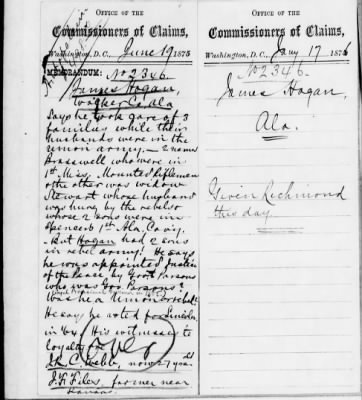 OFFICE OF THE
Commissioners of Claims,
Washington, D.C., June 19 1875
MEMORANDUM: No 2346.
James Hogan,
Walker Co, Ala
Says he took care of 3
families while their
husbands were in the
union army. — 2 named
Brasswell who were in
1st. Miss. Mounted Riflemen
& the other was widow
Stewart whose husband
was hung by the rebels &
whose 2 sons were in
Spencers 1st Ala. Cavy.
But Hogan had 2 sons
in rebel army! He says
he was appointed Justice
of the Peace, by Govr. Parsons
who was Gov. Parsons?
Was he a Union or rebel?
He says he voted for Lincoln
in '64. His witnesses to
loyalty are
C. Webb, now 27 years
J. F. Files, farmer near
OFFICE OF THE
Commissioners of Claims,
Washington, D.C., Jany 17 1875
No 2346.
James Hogan,
Ala.
Given Richmond
this day.